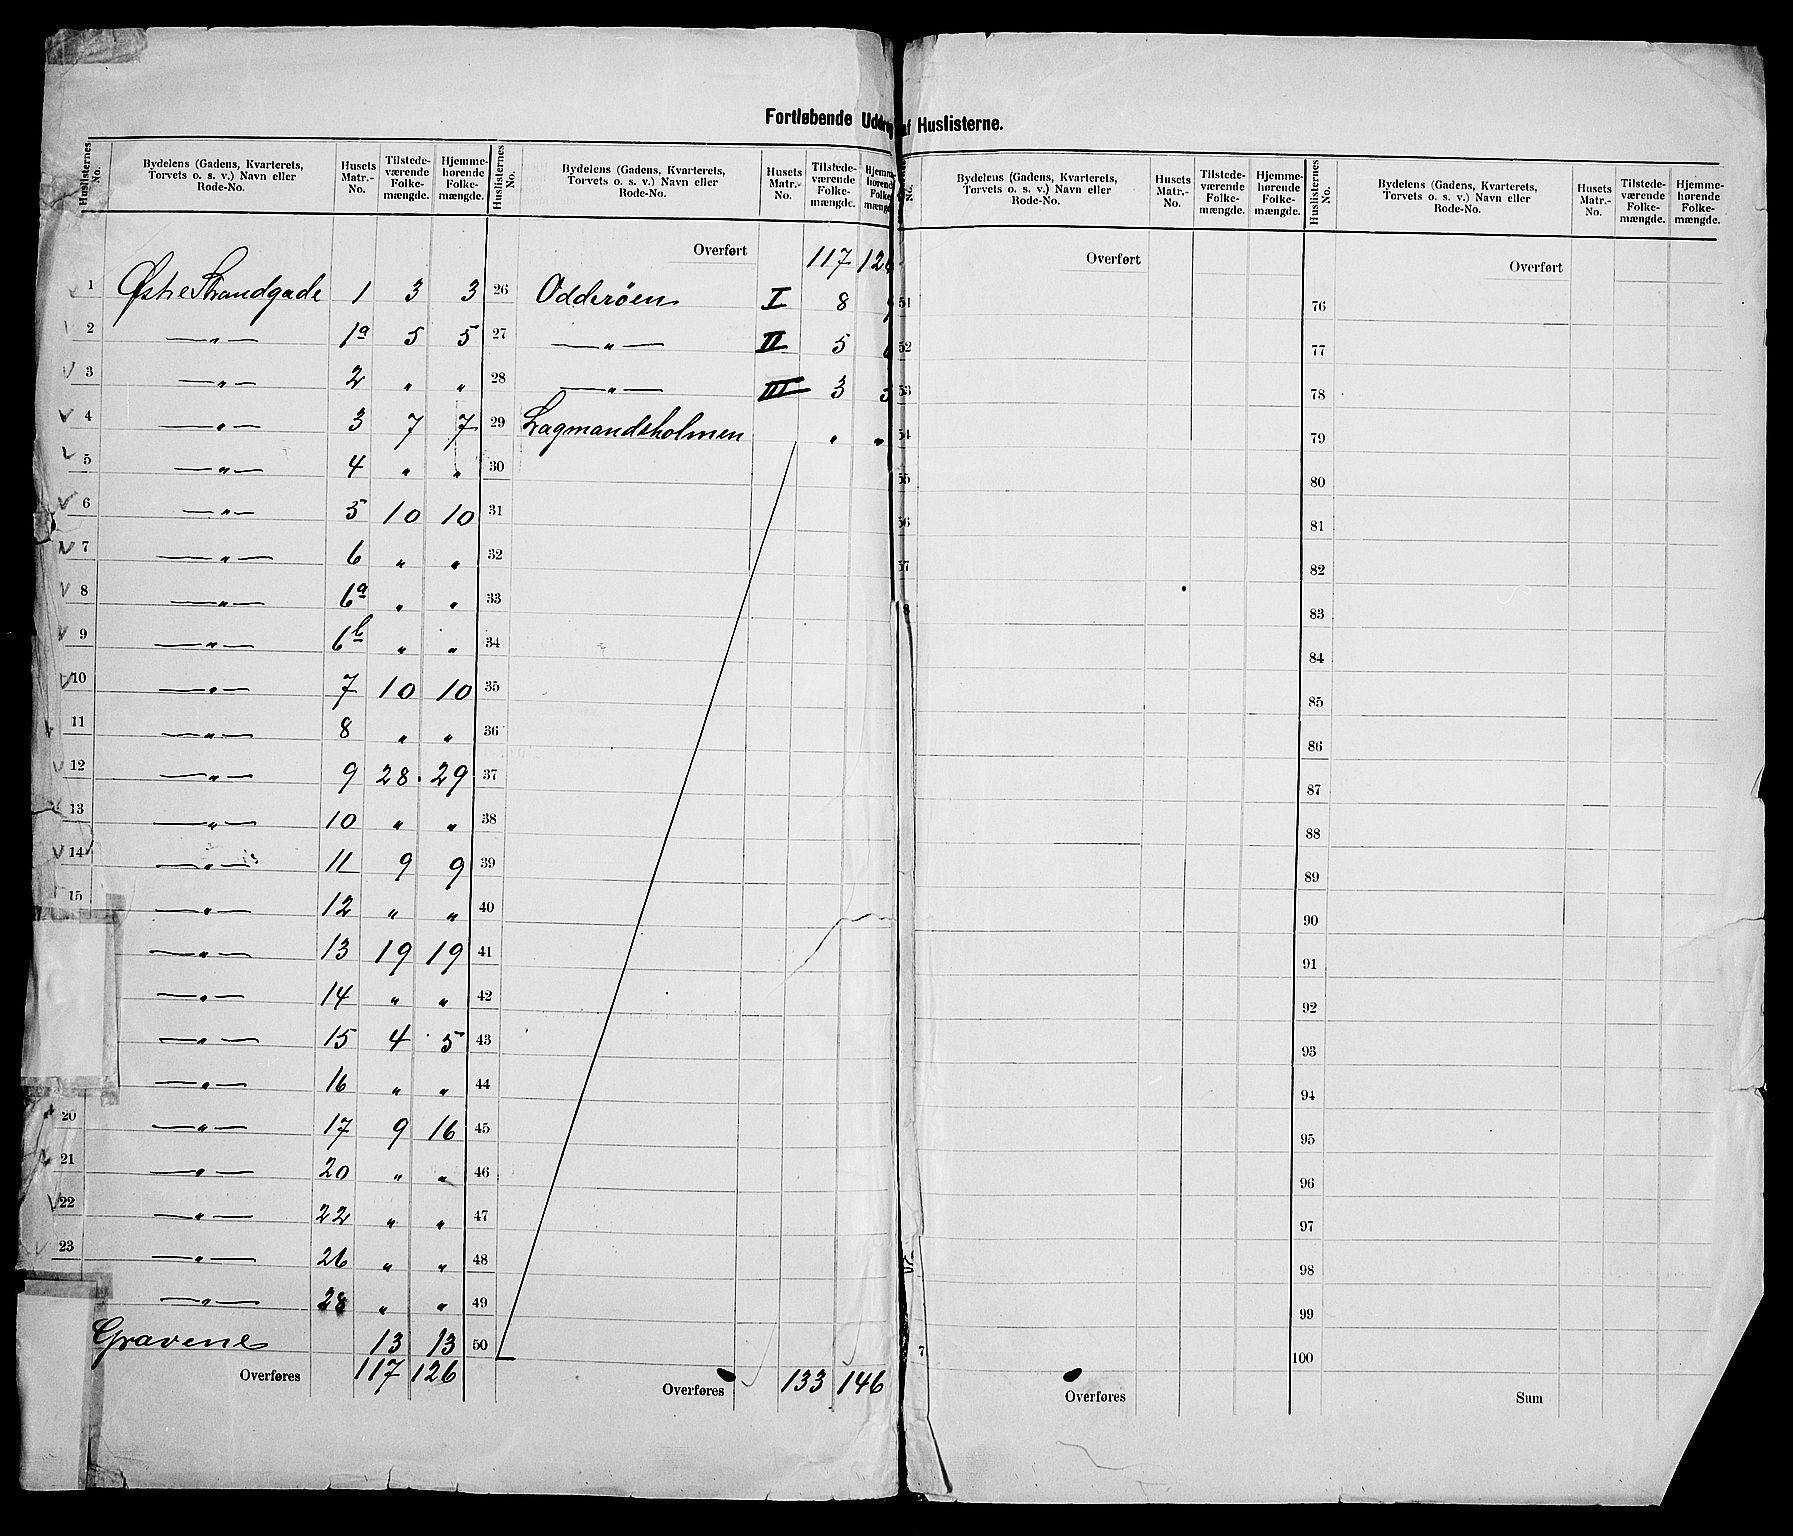 Fortløbende Uddrag af Huslisterne.
Huslisternes No. | Bydelens (Gadens, Kvarterets, Torvets o. s. v.) Navn eller Rode-No. | Husets Matr.-No. | Tilstedeværende Folkemængde. | Hjemmehørende Folkemængde.
1 Østre Strandgade 1 3 3
2 —„— 1a 5 5
3 —„— 2 „ „
4 —„— 3 7 7
5 —„— 4 „ „
6 —„— 5 10 10
7 —„— 6 „ „
8 —„— 6a „ „
9 —„— 6b „ „
10 —„— 7 10 10
11 —„— 8 „ „
12 —„— 9 28 29
13 —„— 10 „ „
14 —„— 11 9 9
15 —„— 12 „ „
—„— 13 19 19
—„— 14 „ „
—„— 15 4 5
—„— 16 „ „
20 —„— 17 9 16
21 —„— 20 „ „
22 —„— 22 „ „
23 —„— 26 „ „
—„— 28 „ „
Gravene 13 13
Overføres 117 126
Huslisternes No. | Bydelens (Gadens, Kvarterets, Torvets o. s. v.) Navn eller Rode-No. | Husets Matr.-No. | Tilstedeværende Folkemængde. | Hjemmehørende Folkemængde
Overført 117 126
26 Odderøen I 8
27 —„— II 5
28 —„— III 3 3
29 Lagmandsholmen „ „
30
31
32
33
34
35
36
37
38
39
40
41
42
43
44
45
46
47
48
49
50
Overføres 133 146
No. | Bydelens (Gadens, Kvarterets, Torvets o. s. v.) Navn eller Rode-No. | Husets Matr.-No. | Tilstedeværende Folkemængde. | Hjemmehørende Folkemængde.
Overført
51
52
53
54
55
56
57
8
7
Overføres
Huslisternes No. | Bydelens (Gadens, Kvarterets, Torvets o. s. v.) Navn eller Rode-No. | Husets Matr.-No. | Tilstedeværende Folkemængde. | Hjemmehørende Folkemængde.
Overført
76
77
78
79
80
81
82
83
84
85
86
87
88
89
90
91
92
93
94
95
96
97
98
99
100
Sum